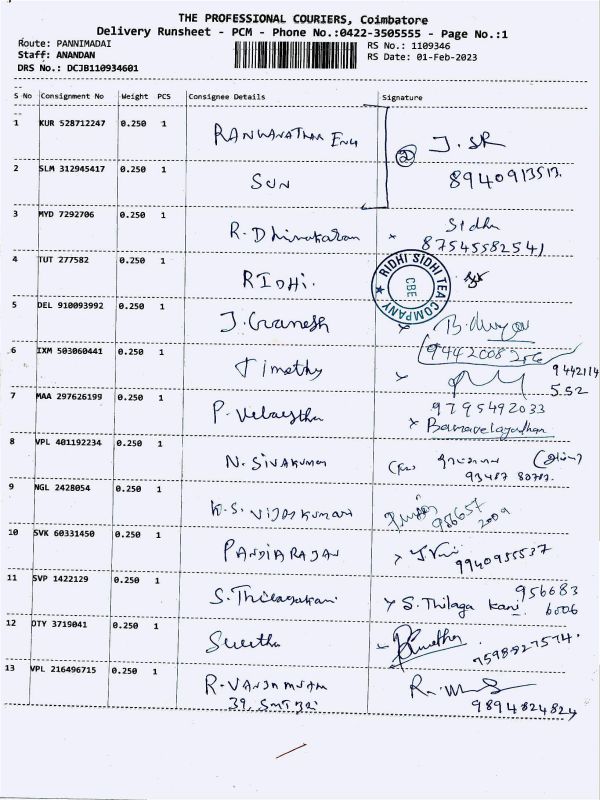 THE PROFESSIONAL COURIERS, Coimbatore
Delivery Runsheet - PCM - Phone No.:0422-3505555 - Page No.:1
Route: PANNIMADAI RS No.: 1109346
Staff: ANANDAN RS Date: 01-Feb-2023
DRS No.: DCJB110934601
S No Consignment No Weight PCS Consignee Details Signature
1 KUR 528712247 0.250 1 J. SR
2 SLM 312945417 0.250 1 SUN 8940913513.
3 MYD 7292706 0.250 1 R. Dhinakaran Sidhu
87545582541
4 TUT 277582 0.250 1 RIDHI. RIDHI SIDHI TEA COMPANY CBE
5 DEL 910093992 0.250 1 J. Ganesh
9442008256
6 IXM 503060441 0.250 1 Timothy 9442114
552
7 MAA 297626199 0.250 1 P. 9795492033
Bamavelayudhan
8 VPL 401192234 0.250 1 N. SIVAKUMAR
9 NGL 2428054 0.250 1 K.S. VIJAYKUMAR 986657
2009
10 SVK 60331450 0.250 1 PANDIARAJAN 9940955537
11 SVP 1422129 0.250 1 S. Thilagakani 956683
S. Thilaga Kani. 6006
12 OTY 3719041 0.250 1 7598827574.
13 VPL 216496715 0.250 1 R.
39, 9894824824